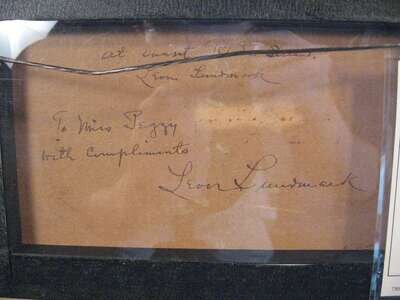 at sunset
Leon Lundmark
To Miss Peggy
with compliments
Leon Lundmark